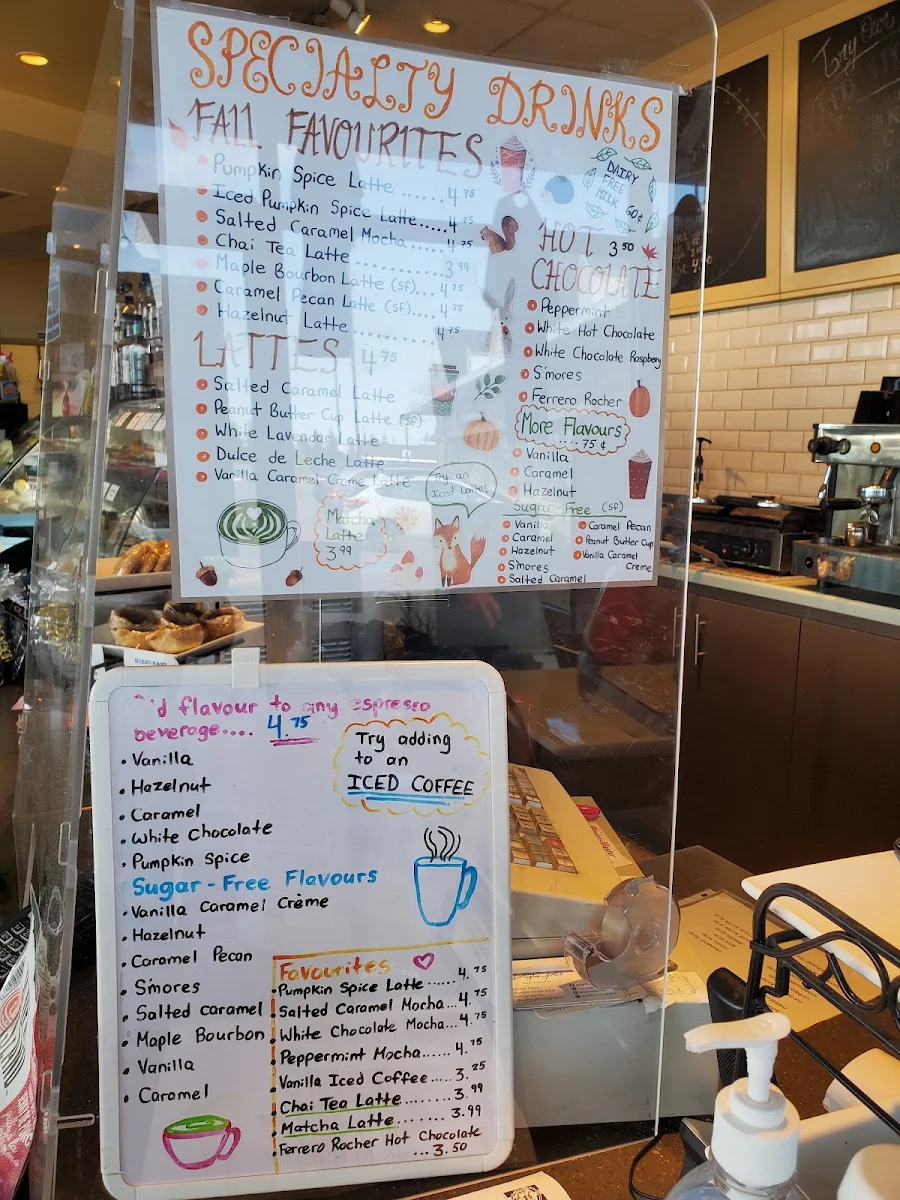 SPECIALTY DRINKS
FAll FAVOURITES
Pumpkin Spice Latte ...... 4.75
Iced Pumpkin Spice Latte.....4.75
Salted Caramel Mocha ........ 4.75
Chai Tea Latte .............. 3.99
Maple Bourbon Latte (SF)... 4.75
Caramel Pecan Latte (SF).... 4.75
Hazelnut Latte ............ 4.75
LATTES 4.75
Salted Caramel Latte
Peanut Butter Cup Latte (SF)
White Lavendar Latte
Dulce de Leche Latte
Vanilla Caramel Crème Latte
Matcha
Latte
3.99
Try an
Iced Latte!
DAIRY
FREE
MILK
60¢
HOT 3.50
CHOCOLATE
Peppermint
White Hot Chocolate
White Chocolate Raspbery
S'mores
Ferrero Rocher
More Flavours
.... 75 ¢
Vanilla
Caramel
Hazelnut
Sugar-Free (SF)
Vanilla
Caramel
Hazelnut
S'mores
Salted Caramel
Caramel Pecan
Peanut Butter Cup
Vanilla Caramel
Creme
Try Our
'd flavour to any espresso
beverage.... 4.75
Try adding
to an
ICED COFFEE
Vanilla
Hazelnut
Caramel
White Chocolate
Pumpkin Spice
Sugar-Free Flavours
Vanilla Caramel Crème
Hazelnut
Caramel Pecan
S'mores
Salted caramel
Maple Bourbon
Vanilla
Caramel
Favourites
Pumpkin Spice Latte ...... 4.75
Salted Caramel Mocha...4.75
White Chocolate Mocha...4.75
Peppermint Mocha...... 4.75
Vanilla Iced Coffee ..... 3.25
Chai Tea Latte.......... 3.99
Matcha Latte ....... 3.99
Ferrero Rocher Hot Chocolate
... 3.50